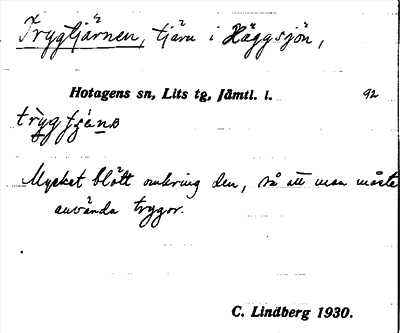 Trygtjärnen, tjärn i Häggsjön,
Hotagens sn, Lits tg, Jämtl. l.
92
Mycket blött omkring den, så att man måste
använda trygor.
C. Lindberg 1930.